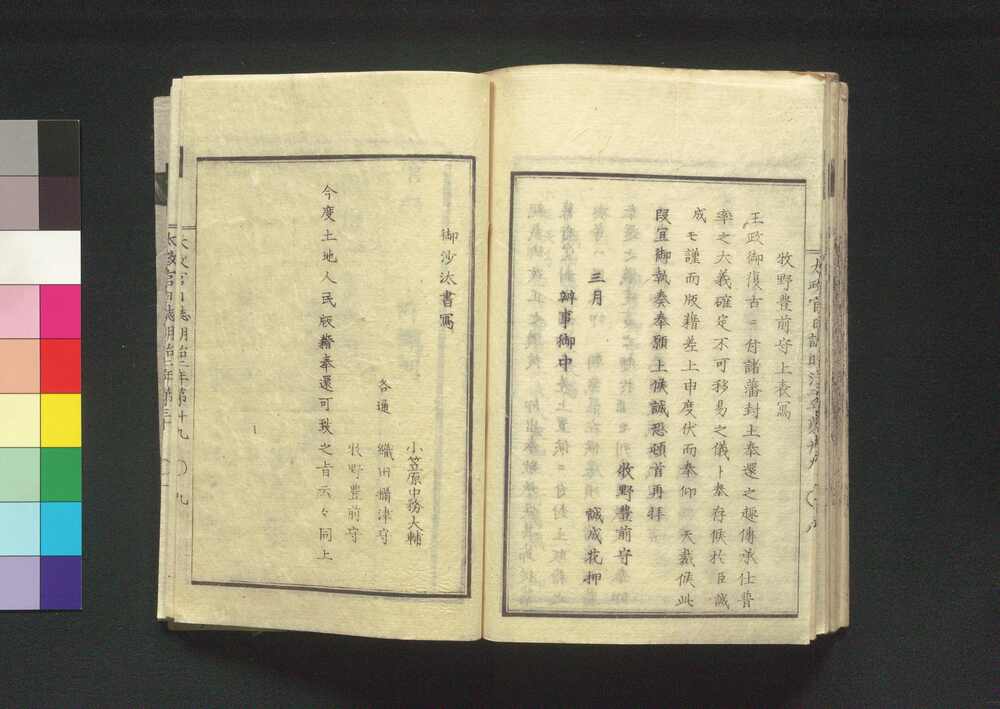 牧野豊前守上表寫
王政御復古ニ付諸藩封土奉還之趣傳承仕普
率之大義確定不可移易之儀ト奉存候於臣誠
成モ謹而版籍差上申度伏而奉仰 天裁候此
段宜御執奏奉願上候誠恐頓首再拝
牧野豊前守
三月 誠成花押
辨事御中
御沙汰書寫
小笠原中務大輔
各通 織田攝津守
牧野豊前守
今度土地人民版籍奉還可致之旨云々同上
太政官日誌明治二年第十九 〇九